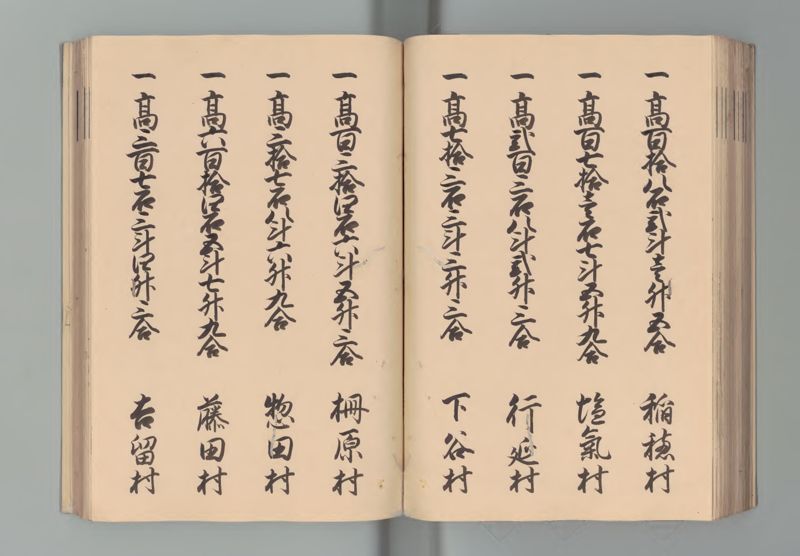 一 高百拾八石弐斗壱升五合 稲穂村
一 高百七拾壱石七斗五升九合 塩氣村
一 高弐百三石八斗弐升三合 行延村
一 高七拾三石三斗三升三合 下谷村
一 高百三拾四石六斗五升三合 柵原村
一 高三拾七石八斗六升九合 惣田村
一 高六百拾四石五斗七升九合 藤田村
一 高三百七石三斗四升三合 吉留村